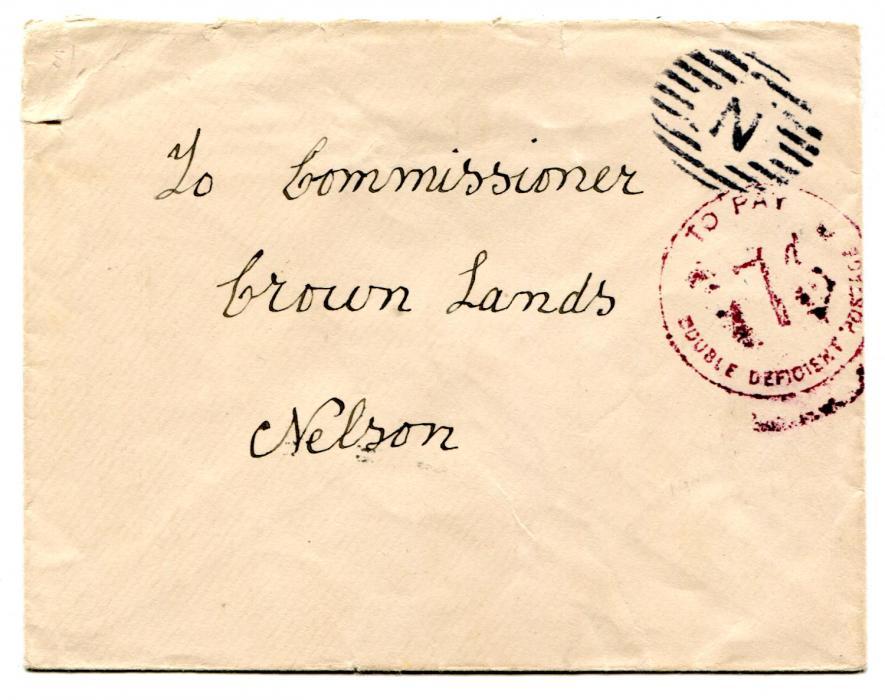 To Commissioner
Crown Lands
Nelson
N
TO PAY
7d
DOUBLE DEFICIENT POSTAGE